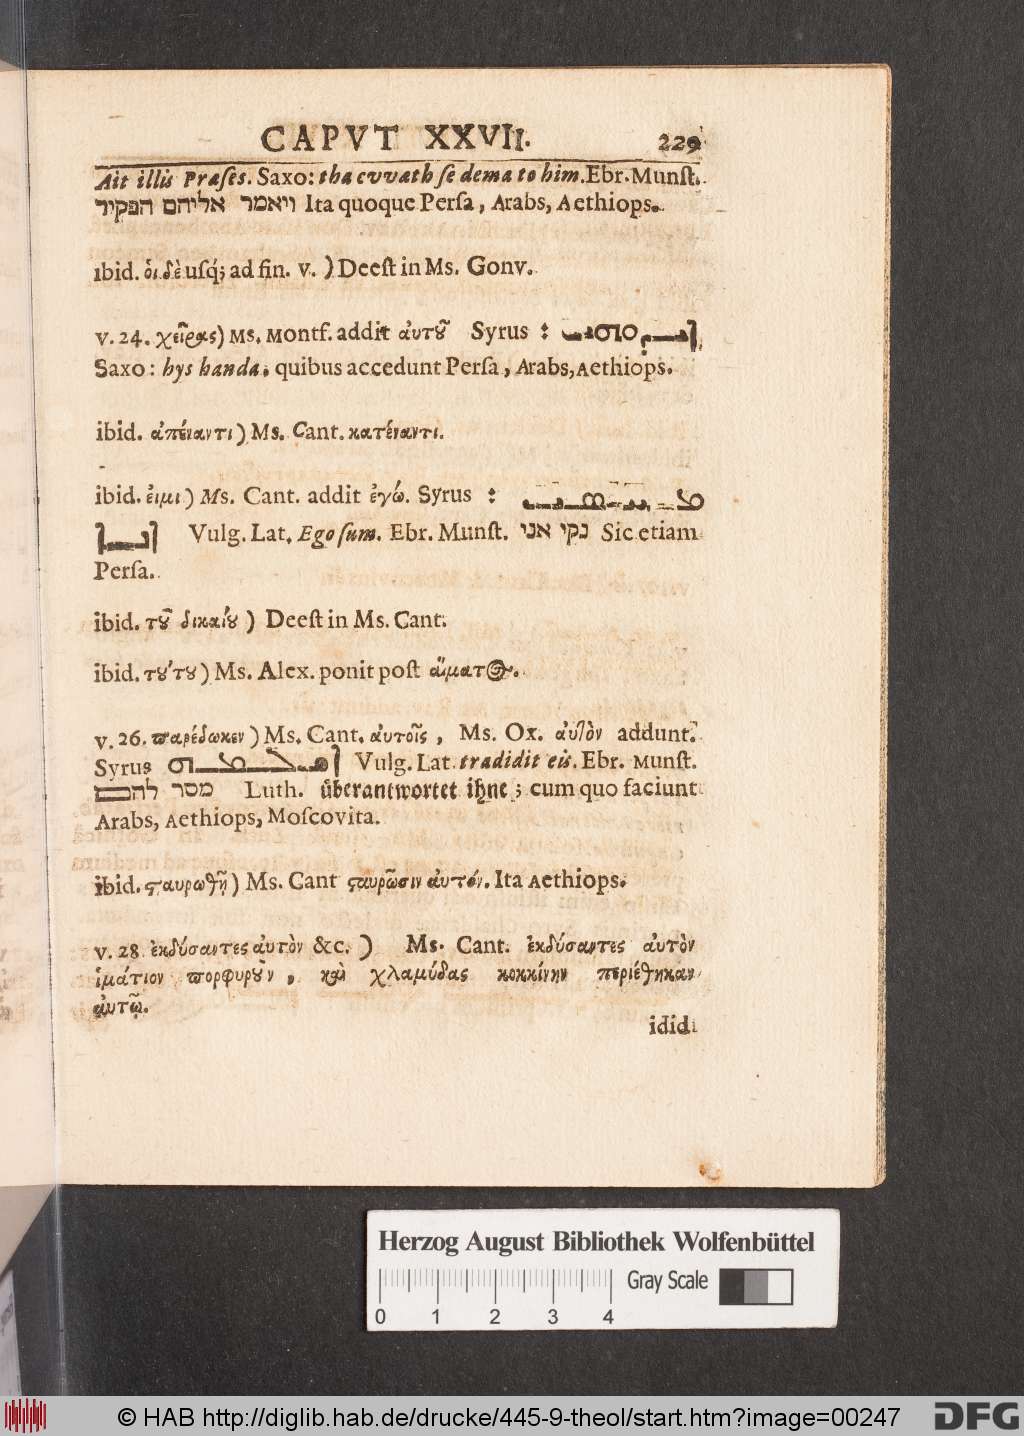 CAPVT XXVII. 229
Ait illis Præses. Saxo: tha cvvath se dema to him. Ebr. Munst.
ויאמר אליהם הפקיד Ita quoque Persa, Arabs, Aethiops.
ibid. ὁι δὲ usq́; ad fin. v. ) Deest in Ms. Gonv.
v. 24. χεῖρας) Ms. Montf. addit ἀυτοῦ Syrus :
Saxo: hys handa. quibus accedunt Persa, Arabs, Aethiops.
ibid. ἀπέναντι) Ms. Cant. κατέναντι.
ibid. ἐιμι) Ms. Cant. addit ἐγώ. Syrus :
Vulg. Lat. Ego sum. Ebr. Munst. נקי אני Sic etiam
Persa.
ibid. τοῦ δικαίου) Deest in Ms. Cant.
ibid. τούτου) Ms. Alex. ponit post αἵματος.
v. 26. παρέδωκεν) Ms. Cant. ἀυτοῖς, Ms. Ox. ἀυτὸν addunt.
Syrus Vulg. Lat. tradidit eis. Ebr. Munst.
מסר להם Luth. überantwortet ihne; cum quo faciunt
Arabs, Aethiops, Moscovita.
ibid. ϛαυρωθῆ) Ms. Cant ϛαυρῶσιν ἀυτόν. Ita Aethiops.
v. 28 ἐκδύσαντες ἀυτὸν &c. ) Ms. Cant. ἐκδύσαντες ἀυτὸν
ἱμάτιον πορφυροῦν, καὶ χλαμύδας κοκκίνην περιέθηκαν
ἀυτῷ.
ididi
Herzog August Bibliothek Wolfenbüttel
Gray Scale
0 1 2 3 4
© HAB http://diglib.hab.de/drucke/445-9-theol/start.htm?image=00247
DFG